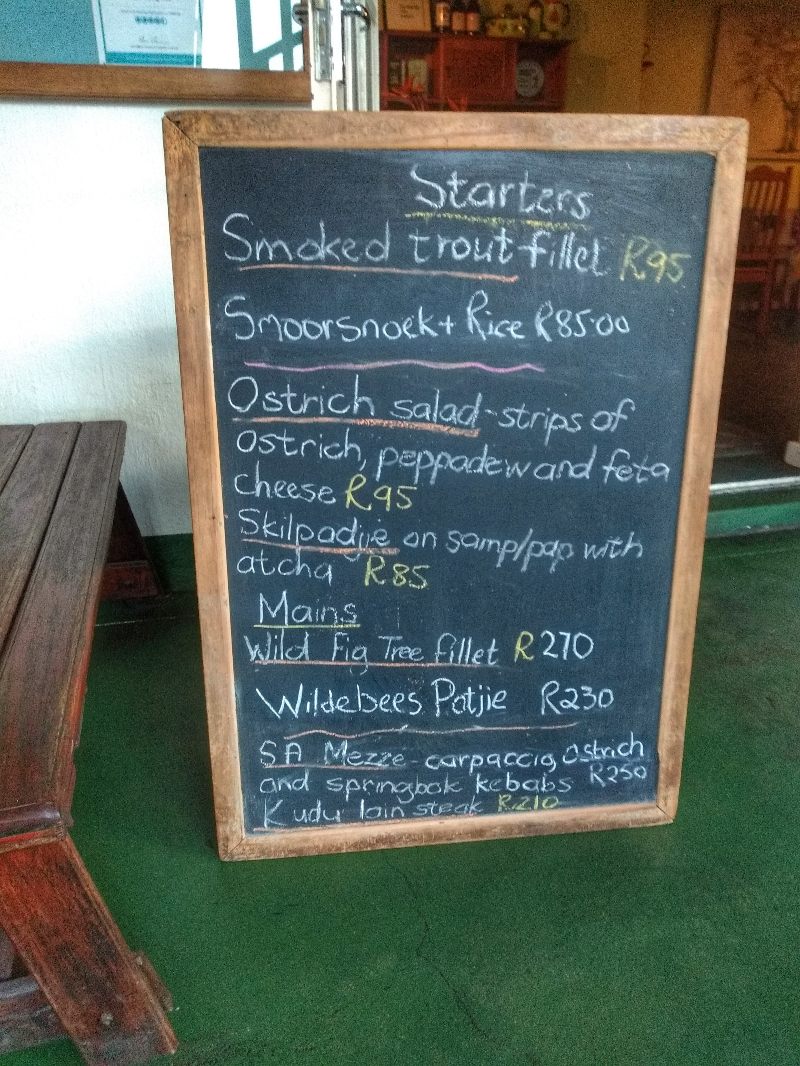 Starters
Smoked trout fillet R95
Smoorsnoek + Rice R85.00
Ostrich salad - strips of
ostrich, peppadew and feta
cheese R95
Skilpadjie on samp/pap with
atcha R85
Mains
Wild Fig Tree fillet R270
Wildebees Potjie R230
SA Mezze - carpaccio, ostrich
and springbok kebabs R250
Kudu loin steak R210